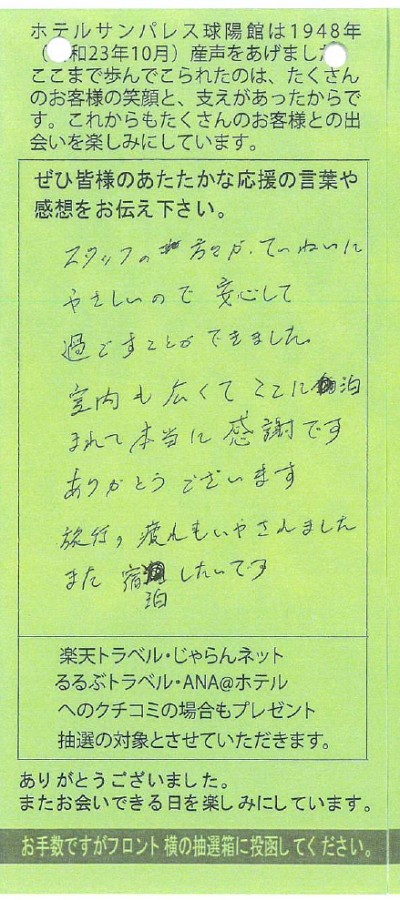 ホテルサンパレス球陽館は1948年
和23年10月）産声をあげまし
ここまで歩んでこられたのは、たくさん
のお客様の笑顔と、支えがあったからで
す。これからもたくさんのお客様との出
会いを楽しみにしています。
ぜひ皆様のあたたかな応援の言葉や
感想をお伝え下さい。
スタッフの 方々が、ていねいに
やさしいので 安心して
過ごすことができました。
室内も広くて ここに 泊
まれて本当に感謝です
ありがとうございます
旅行の疲れもいやされました
また 宿泊したいです
楽天トラベル・じゃらんネット
るるぶトラベル・ANA@ホテル
へのクチコミの場合もプレゼント
抽選の対象とさせていただきます。
ありがとうございました。
またお会いできる日を楽しみにしています。
お手数ですがフロント 横の抽選箱に投函してください。